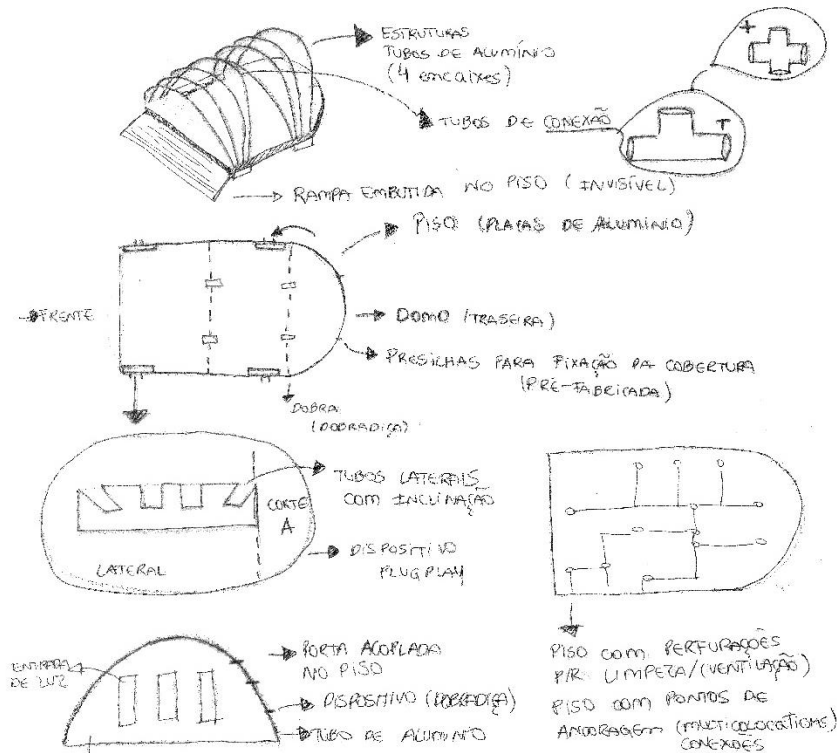 ESTRUTURAS
TUBOS DE ALUMÍNIO
(4 encaixes)
+
TUBOS DE CONEXÃO
T
RAMPA EMBUTIDA NO PISO (INVISÍVEL)
PISO (PLACAS DE ALUMÍNIO)
FRENTE
DOMO (TRASEIRA)
PRESILHAS PARA FIXAÇÃO DA COBERTURA
(PRÉ-FABRICADA)
DOBRA
(DOBRADIÇA)
TUBOS LATERAIS
COM INCLINAÇÃO
CORTE
A
DISPOSITIVO
PLUGPLAY
LATERAL
ENTRADA
DE LUZ
PORTA ACOPLADA
NO PISO
DISPOSITIVO (DOBRADIÇA)
TUBO DE ALUMINIO
PISO COM PERFURAÇÕES
P/R LIMPEZA/(VENTILAÇÃO)
PISO COM PONTOS DE
ANCORAGEM (MULTICOLOCATIONS)
CONEXÕES